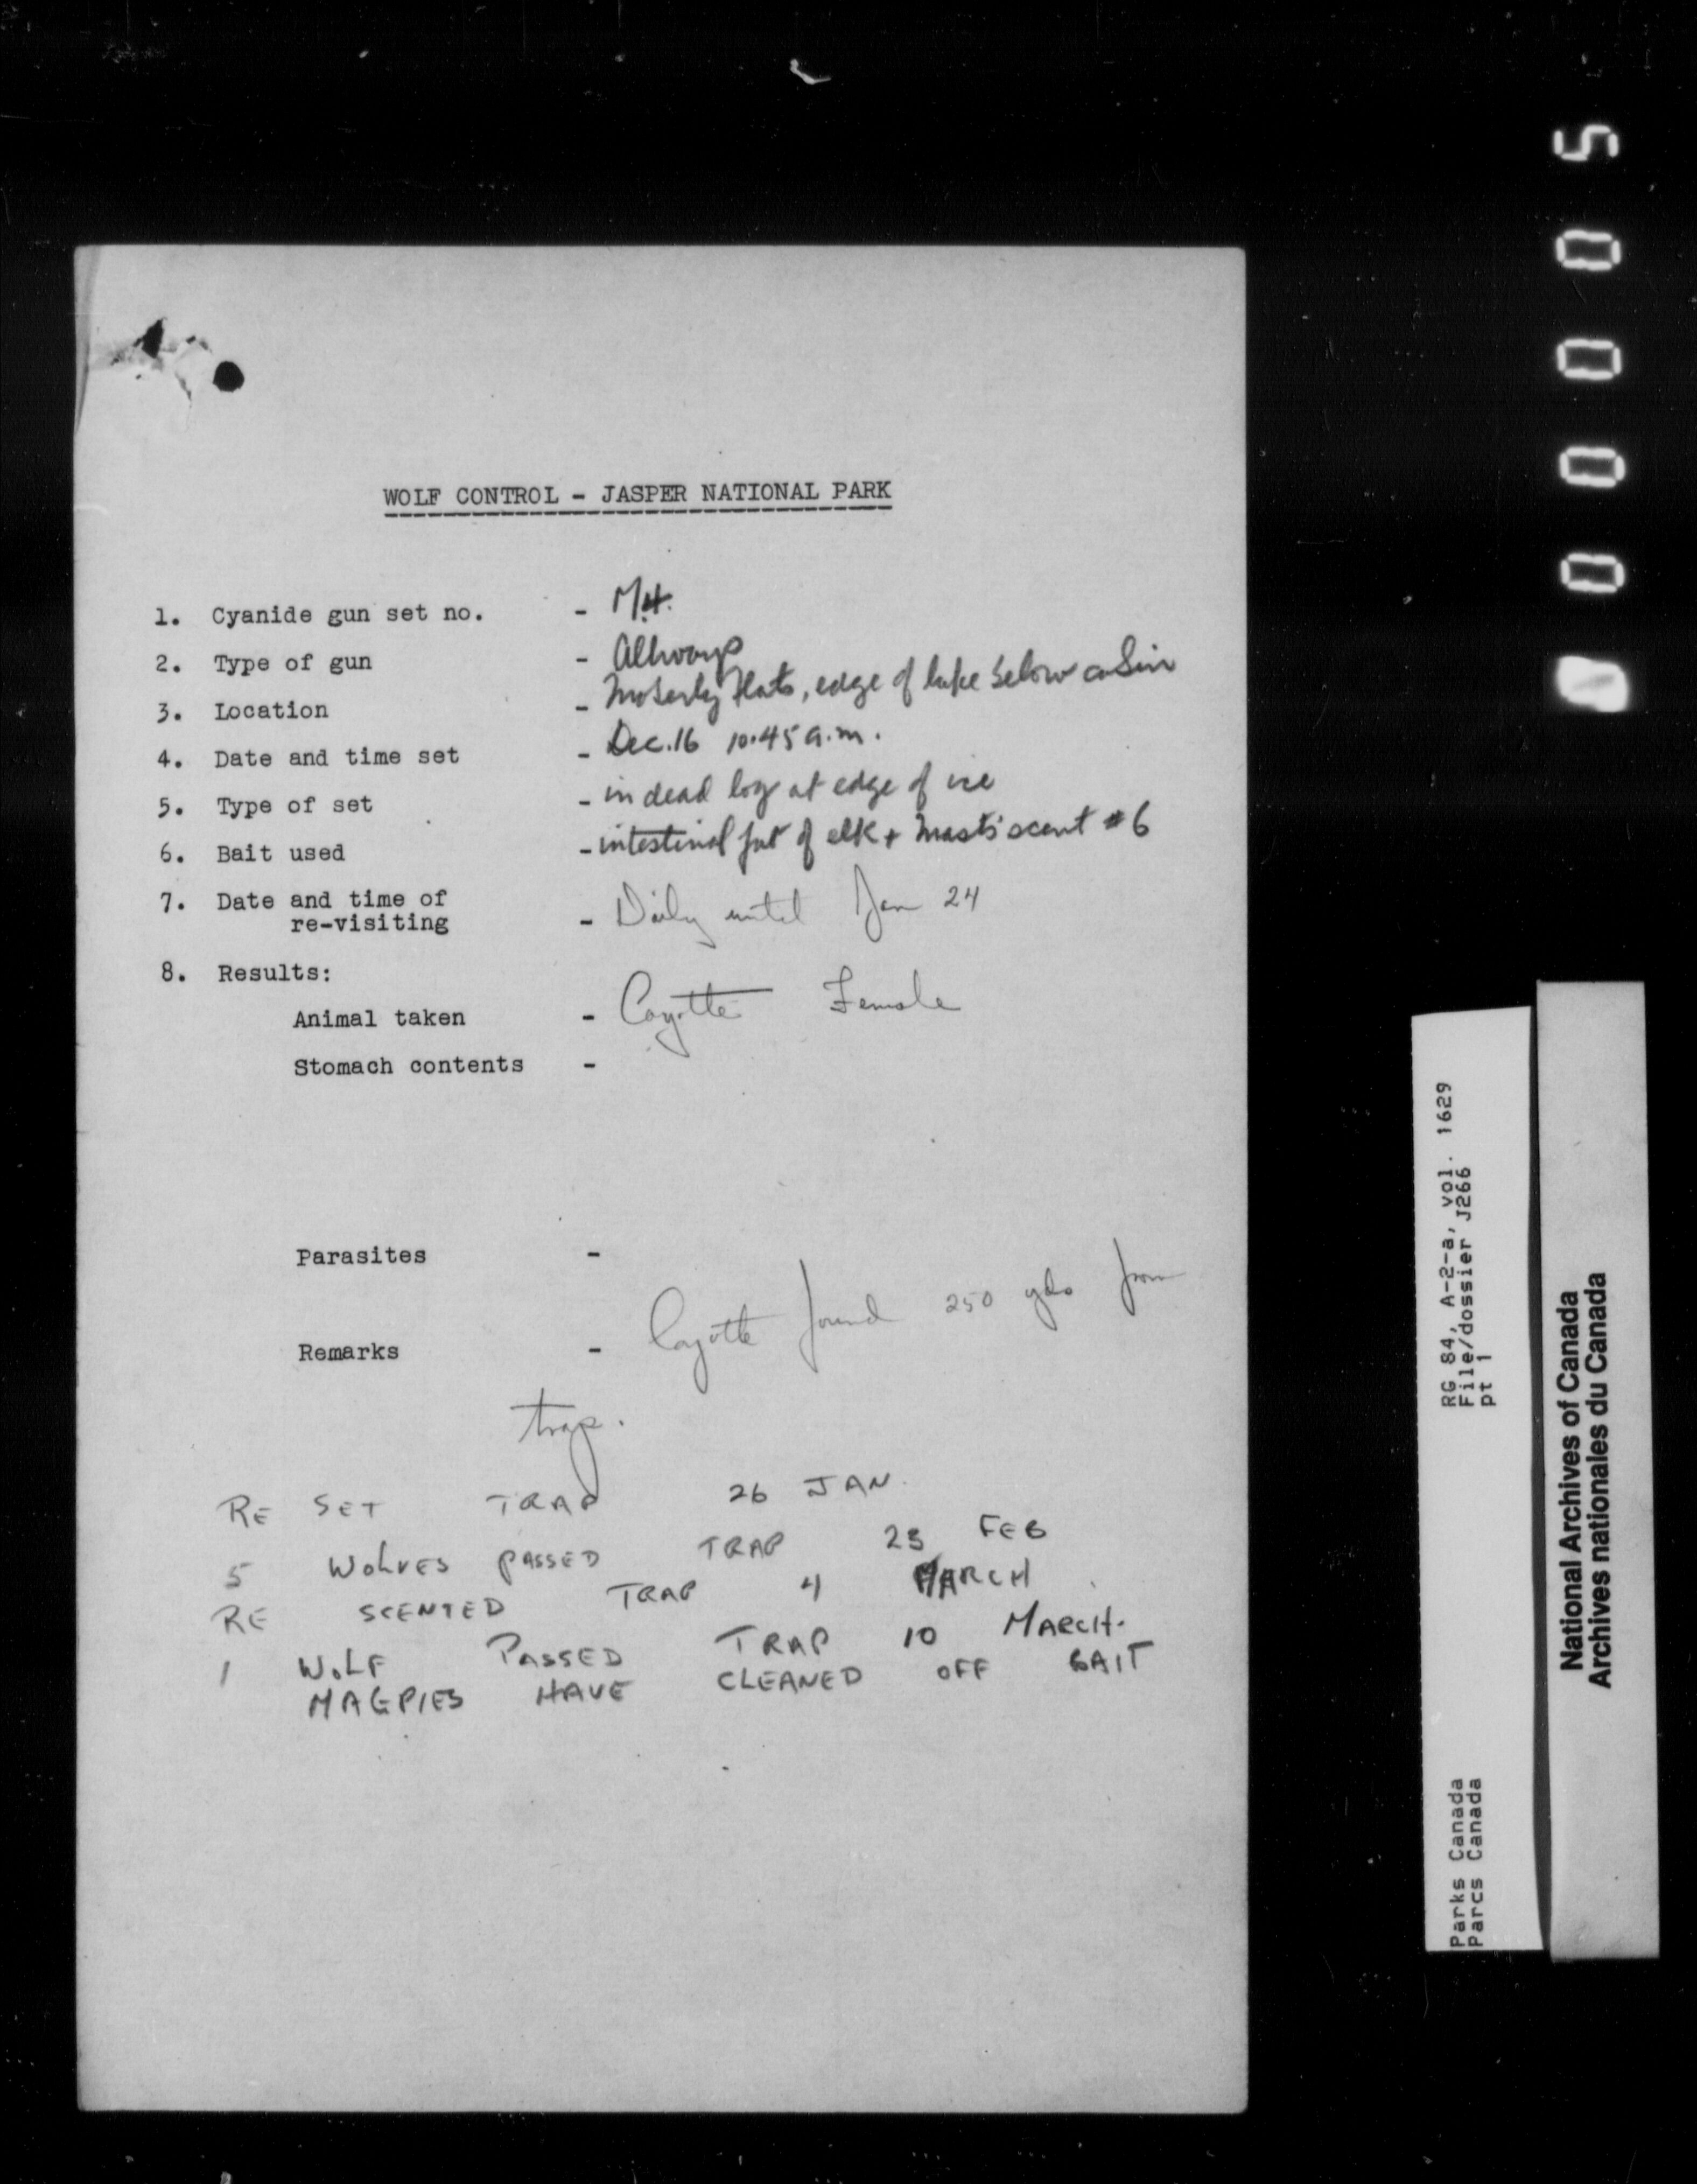 WOLF CONTROL - JASPER NATIONAL PARK
1. Cyanide gun set no. - M.4.
2. Type of gun - Allways
3. Location - Moberly Flats, edge of lake below cabin
4. Date and time set - Dec.16 10.45 a.m.
5. Type of set - in dead log at edge of ice
6. Bait used - intestinal fat of elk + Masts' scent #6
7. Date and time of
re-visiting - Daily until Jan 24
8. Results:
Animal taken - Coyotte Female
Stomach contents -
Parasites -
Remarks - Coyotte found 250 yds from
trap.
RE SET TRAP 26 JAN.
5 WOLVES PASSED TRAP 23 FEB
RE SCENTED TRAP 4 MARCH
1 WOLF PASSED TRAP 10 MARCH.
MAGPIES HAVE CLEANED OFF BAIT
00005
RG 84, A-2-a, vol. 1629
File/dossier J266
pt 1
Parks Canada
Parcs Canada
National Archives of Canada
Archives nationales du Canada